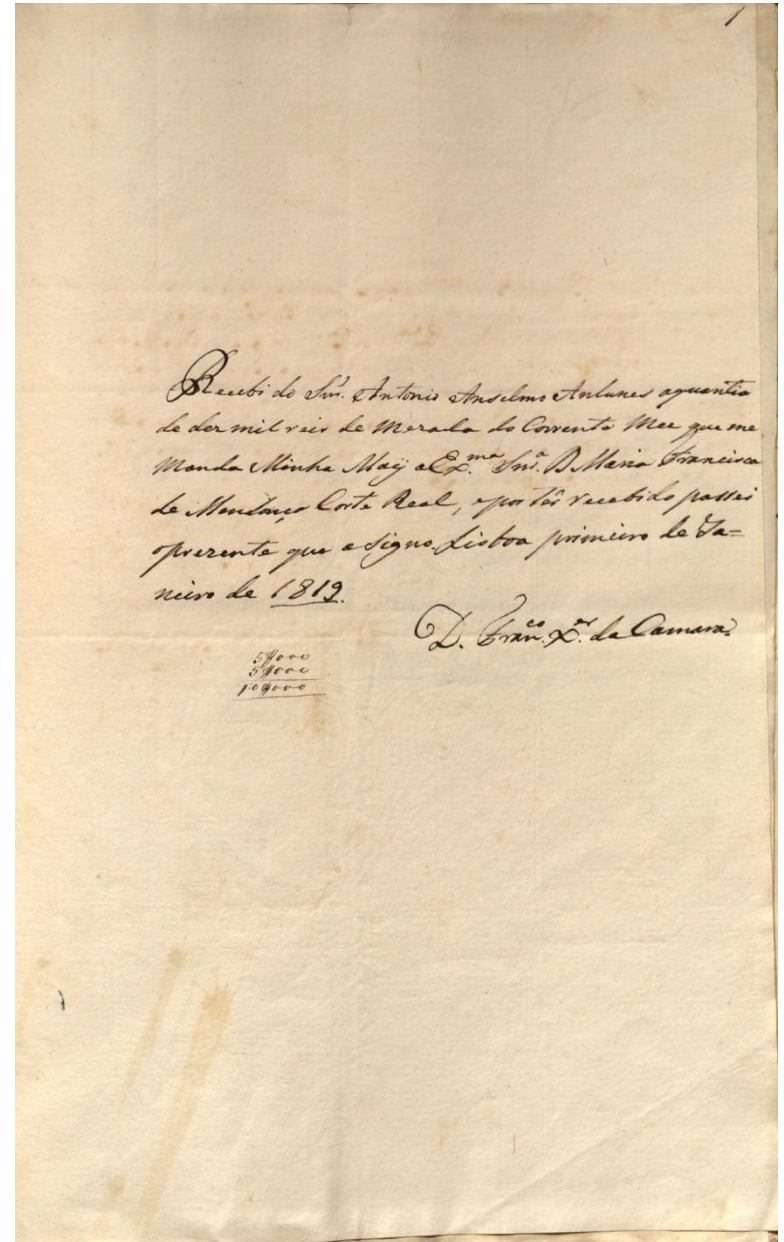 1
Recebi do Snr. Antonio Anselmo Antunes aquantia
de dez mil reis de Mezada do Corrente Mez que me
Manda Minha Maÿ a Ex.ma Snr.a D Maria Francisca
de Mendonça Corte Real, e por têr recebido passei
oprezente que asigno. Lisboa primeiro de Ja=
neiro de 1819.
D. Fran.co X.er da Camara.
5$000
5$000
10$000